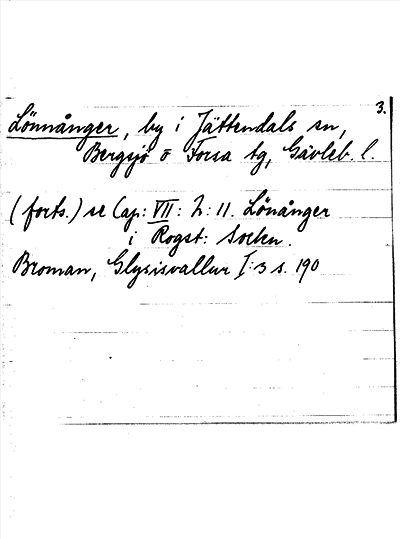 3.
Lönnånger, by i Jättendals sn,
Bergsjö o Forsa tg, Gävleb. l.
(forts.) se Cap: VII: h: 11. Lönånger
i Rogst: Sockn.
Broman, Glysisvallur I:3 s. 190